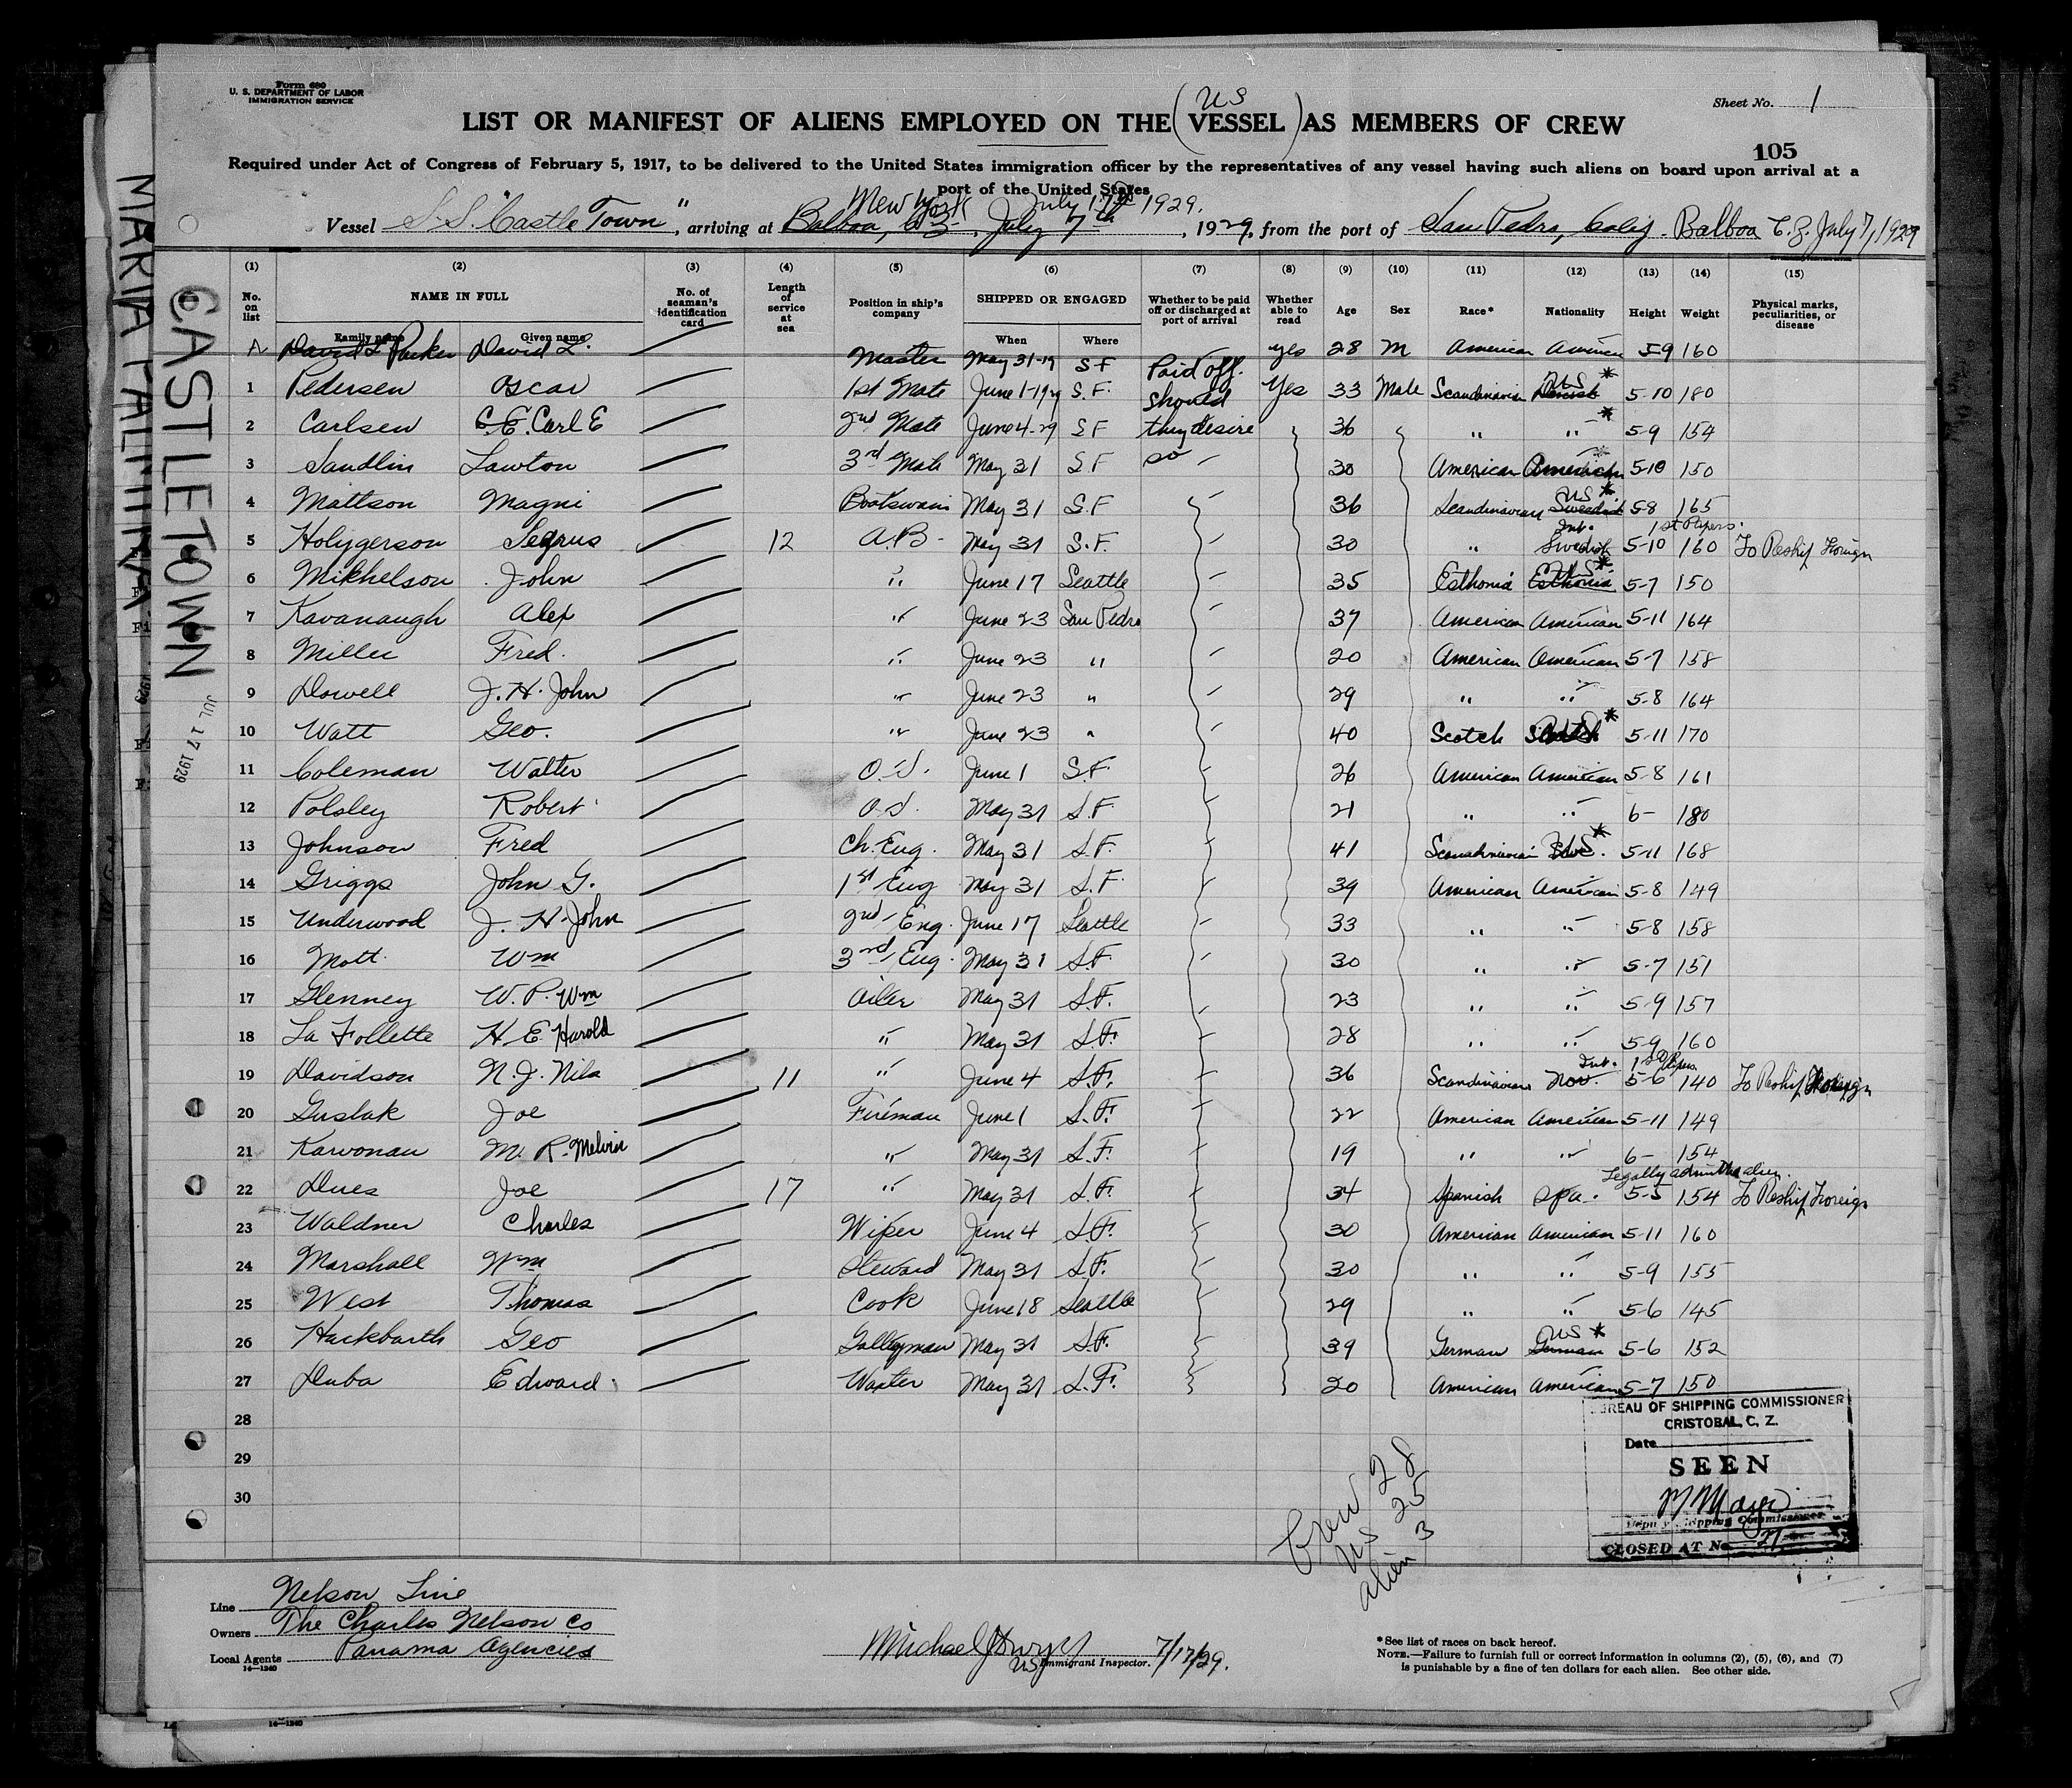 Form 680
U. S. DEPARTMENT OF LABOR
IMMIGRATION SERVICE
Sheet No. 1
US
LIST OR MANIFEST OF ALIENS EMPLOYED ON THE (VESSEL) AS MEMBERS OF CREW
105
Required under Act of Congress of February 5, 1917, to be delivered to the United States immigration officer by the representatives of any vessel having such aliens on board upon arrival at a
port of the United States
New York July 17th 1929.
Vessel S.S. "Castle Town", arriving at Balboa, C.Z., July 7th, 1929, from the port of San Pedro, Calif. Balboa C.Z. July 7, 1929
(1) (2) (3) (4) (5) (6) (7) (8) (9) (10) (11) (12) (13) (14) (15)
No. on list NAME IN FULL Family name Given name No. of seaman's identification card Length of service at sea Position in ship's company SHIPPED OR ENGAGED When Where Whether to be paid off or discharged at port of arrival Whether able to read Age Sex Race* Nationality Height Weight Physical marks, peculiarities, or disease
David L Parker David L. Master May 31-19 S F Paid off. yes 28 M American American 5-9 160
1 Pedersen Oscar 1st Mate June 1-1929 S.F. should Yes 33 Male Scandinavian Danish US * 5-10 180
2 Carlsen C.E. Carl E 2nd Mate June 4-29 S F they desire 36 " " * 5-9 154
3 Sandlin Lawton 3rd Mate May 31 S F so 30 American American 5-10 150
4 Mattson Magni Boatswain May 31 S.F 36 Scandinavian Swedish US * 5-8 165
5 Holygerson Segrus 12 A.B. May 31 S.F. 30 " Swedish Int. 1st Papers. 5-10 160 To Reship Foreign
6 Mikhelson John " June 17 Seattle 35 Esthonia Esthonia US * 5-7 150
7 Kavanaugh Alex " June 23 San Pedro 37 American American 5-11 164
8 Miller Fred. " June 23 " 20 American American 5-7 158
9 Dowell J. H. John " June 23 " 29 " " 5-8 164
10 Watt Geo. " June 23 " 40 Scotch Scotch US * 5-11 170
11 Coleman Walter O.S. June 1 S.F. 26 American American 5-8 161
12 Polsley Robert O.S. May 31 S.F. 21 " " 6- 180
13 Johnson Fred Ch. Eng. May 31 S.F. 41 Scandinavian US * 5-11 168
14 Griggs John G. 1st Eng May 31 S.F. 39 American American 5-8 149
15 Underwood J. H. John 2nd Eng. June 17 Seattle 33 " " 5-8 158
16 Mott Wm 3rd Eng. May 31 S.F. 30 " " 5-7 151
17 Glenney W. P. Wm Oiler May 31 S.F. 23 " " 5-9 157
18 La Follette H. E. Harold " May 31 S.F. 28 " " 5-9 160
19 Davidson N. J. Nils 11 " June 4 S.F. 36 Scandinavian Nor. Int. 1st Papers. 5-6 140 To Reship Foreign
20 Guslak Joe Fireman June 1 S.F. 22 American American 5-11 149
21 Karvonau M. R. Melvin " May 31 S.F. 19 " " 6- 154
Legally admitted alien.
22 Dues Joe 17 " May 31 S.F. 34 Spanish Spa. 5-5 154 To Reship Foreign
23 Waldner Charles Wiper June 4 S.F. 30 American American 5-11 160
24 Marshall Wm Steward May 31 S.F. 30 " " 5-9 155
25 West Thomas Cook June 18 Seattle 29 " " 5-6 145
26 Hackbarth Geo Galleyman May 31 S.F. 39 German German US * 5-6 152
27 Duba Edward Waiter May 31 S.F. 20 American American 5-7 150
28
29
30
Crew 28
US 25
alien 3
BUREAU OF SHIPPING COMMISSIONER
CRISTOBAL, C. Z.
Date
SEEN
Deputy Shipping Commissioner
CLOSED AT N
Line Nelson Line
Owners The Charles Nelson Co
Local Agents Panama Agencies
14-1240
Michael
US Immigrant Inspector. 7/17/29.
*See list of races on back hereof.
NOTE.—Failure to furnish full or correct information in columns (2), (5), (6), and (7)
is punishable by a fine of ten dollars for each alien. See other side.
14-1240
CASTLETOWN
JUL 17 1929
MARIA PALMIRA